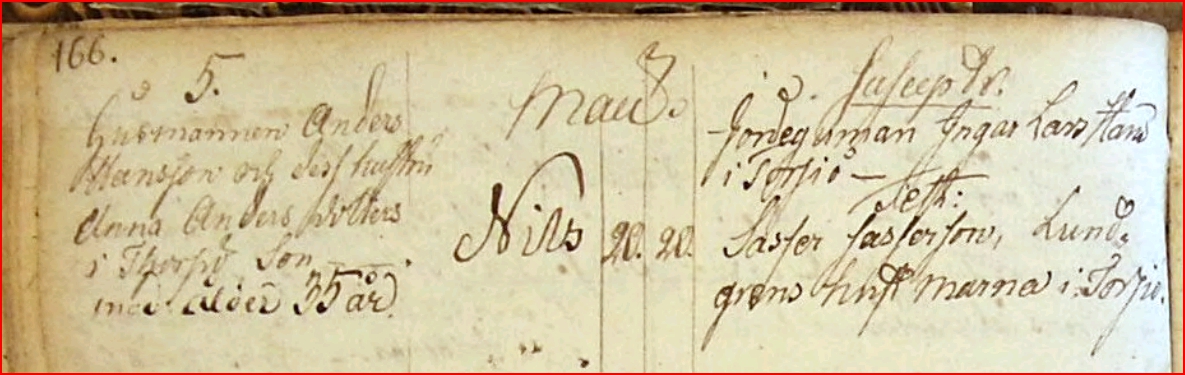 166.
5.
Husmannen Anders
Hansson och dess hustru
Anna Anders Dotters
i Torsiö Son
mod. alder 35 år
Maii
Nils 28. 28.
Suscept:
Jordegumman Ingar Lars
i Torsiö —
Test:
Sasser Sasserson, Lund-
grens hust Marna i Torsiö.